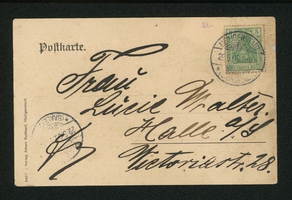 Postkarte.
Frau
Lucie Walter,
Halle a/S
Victoriastr. 28.